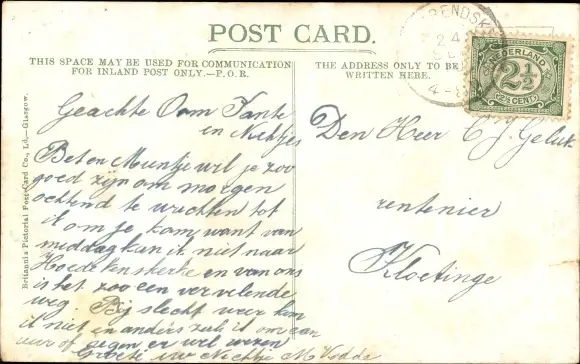 POST CARD.
THIS SPACE MAY BE USED FOR COMMUNICATION
FOR INLAND POST ONLY.—P.O.R.
THE ADDRESS ONLY TO BE
WRITTEN HERE.
NEDERLAND
2½
CENT
24
Britannia Pictorial Post Card Co., Ld.—Glasgow.
Geachte Oom Tante
en Nichtjes
Bet en Muntje wil je zoo
goed zijn om morgen
ochtend te wachten tot
ik om je kom, want van
middag kan ik niet naar
Hoedekenskerke en van ons
is het zoo een vervelende
weg. Bij slecht weer kom
ik niet en anders zal ik om een
uur of negen er wel wezen
Groete uw Nichtje M
Den Heer C J. Geluk
rentenier
Kloetinge